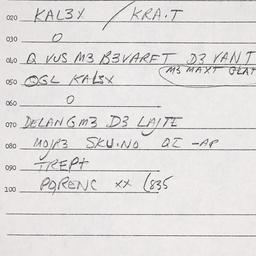 020 KAL3X / KRA·T
030 O
040 Q VUS M3 B3VARFT D3 VANT
(M3 MAXT GLAT
050 QGL KAL3X
060 O
070 DELANGM3 D3 LAJTE
080 MOJP3 SKU·NO QI -AP
090 TREPT
100 PQRENC xx (835